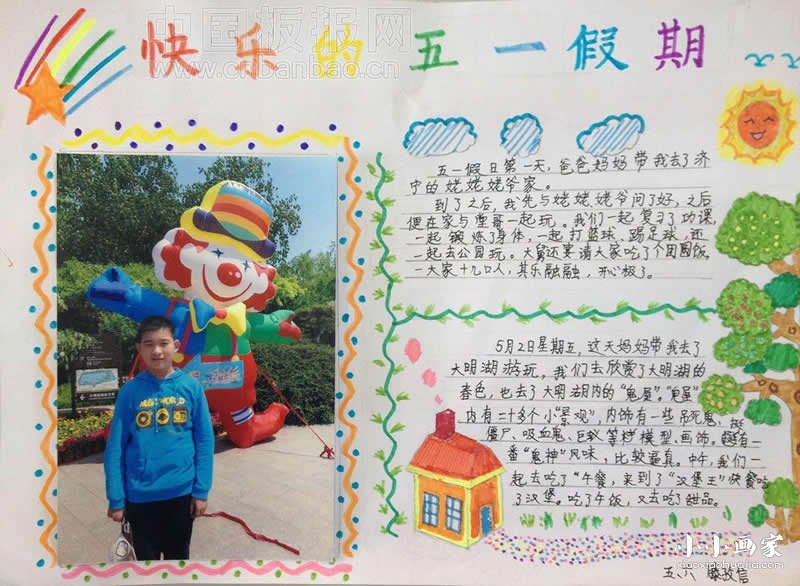 快乐的五一假期
中国板报网
www.cnbanbao.cn
五一假日第一天，爸爸妈妈带我去了济
宁的姥姥姥爷家。
到了之后，我先与姥姥姥爷问了好，之后
便在家与重哥一起玩。我们一起复习了功课，
一起锻炼了身体，一起打蓝球、踢足球，还
一起去公园玩。大舅还要请大家吃了个团圆饭。
一大家十几口人，其乐融融，开心极了。
5月2日星期五，这天妈妈带我去了
大明湖游玩，我们去欣赏了大明湖的
春色，也去了大明湖内的“鬼屋”。“鬼屋”
内有二十多个小“景观”，内饰有一些吊死鬼、
僵尸、吸血鬼、巨蚁等样模型、画饰。挺有一
番“鬼神”风味，比较逼真。中午，我们一
起去吃了“午餐，来到了“汉堡王”快餐吃
了汉堡。吃了午饭，又去吃了甜品。
五.六
小小画家
xiaoxiaohuajia.com